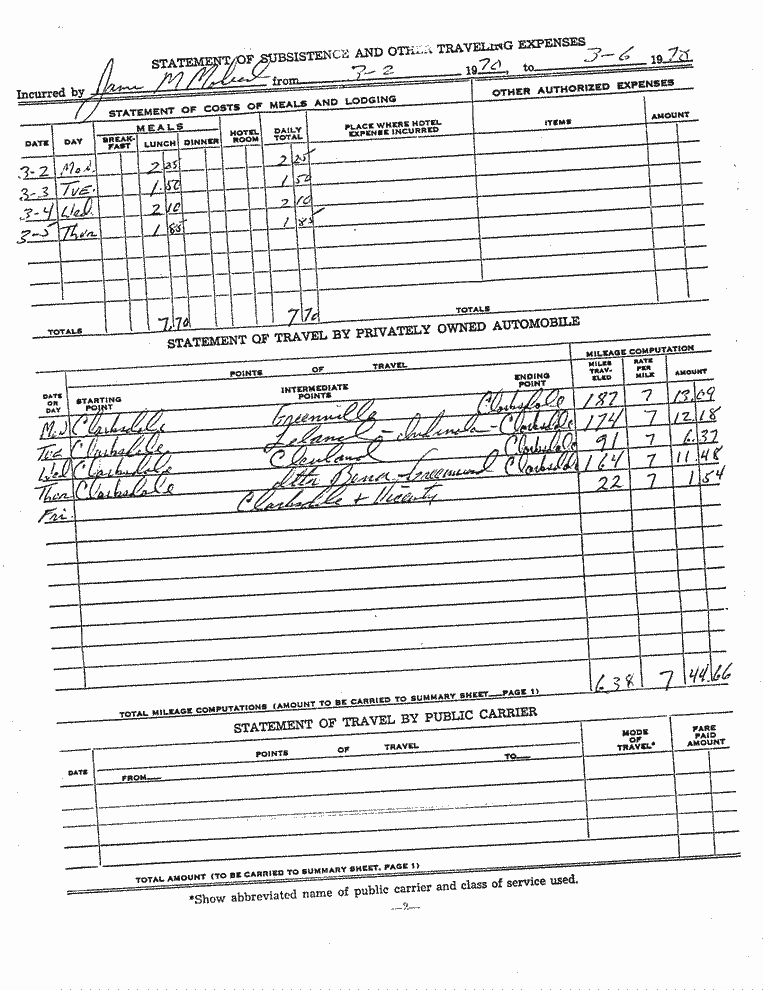 STATEMENT OF SUBSISTENCE AND OTHER TRAVELING EXPENSES
Incurred by M from 3-2 1970, to 3-6 1970
STATEMENT OF COSTS OF MEALS AND LODGING OTHER AUTHORIZED EXPENSES
DATE DAY MEALS BREAK-FAST LUNCH DINNER HOTEL ROOM DAILY TOTAL PLACE WHERE HOTEL EXPENSE INCURRED ITEMS AMOUNT
3-2 Mon. 2 25 2 25
3-3 Tue. 1 50 1 50
3-4 Wed. 2 10 2 10
3-5 Thur 1 85 1 85
TOTALS 7.70 7 70 TOTALS
STATEMENT OF TRAVEL BY PRIVATELY OWNED AUTOMOBILE
POINTS OF TRAVEL MILEAGE COMPUTATION
DATE OR DAY STARTING POINT INTERMEDIATE POINTS ENDING POINT MILES TRAV-ELED RATE PER MILE AMOUNT
Mon Clarksdale Greenville Clarksdale 187 7 13.09
Tue Clarksdale Leland - Indianola - Clarksdale 174 7 12.18
Wed Clarksdale Cleveland Clarksdale 91 7 6.37
Thur Clarksdale Itta Bena - Greenwood Clarksdale 164 7 11.48
Fri. Clarksdale + Vicinity 22 7 1.54
TOTAL MILEAGE COMPUTATIONS (AMOUNT TO BE CARRIED TO SUMMARY SHEET PAGE 1) 638 7 44.66
STATEMENT OF TRAVEL BY PUBLIC CARRIER
DATE POINTS OF TRAVEL MODE OF TRAVEL* FARE PAID AMOUNT
FROM TO
TOTAL AMOUNT (TO BE CARRIED TO SUMMARY SHEET, PAGE 1)
*Show abbreviated name of public carrier and class of service used.
—2—